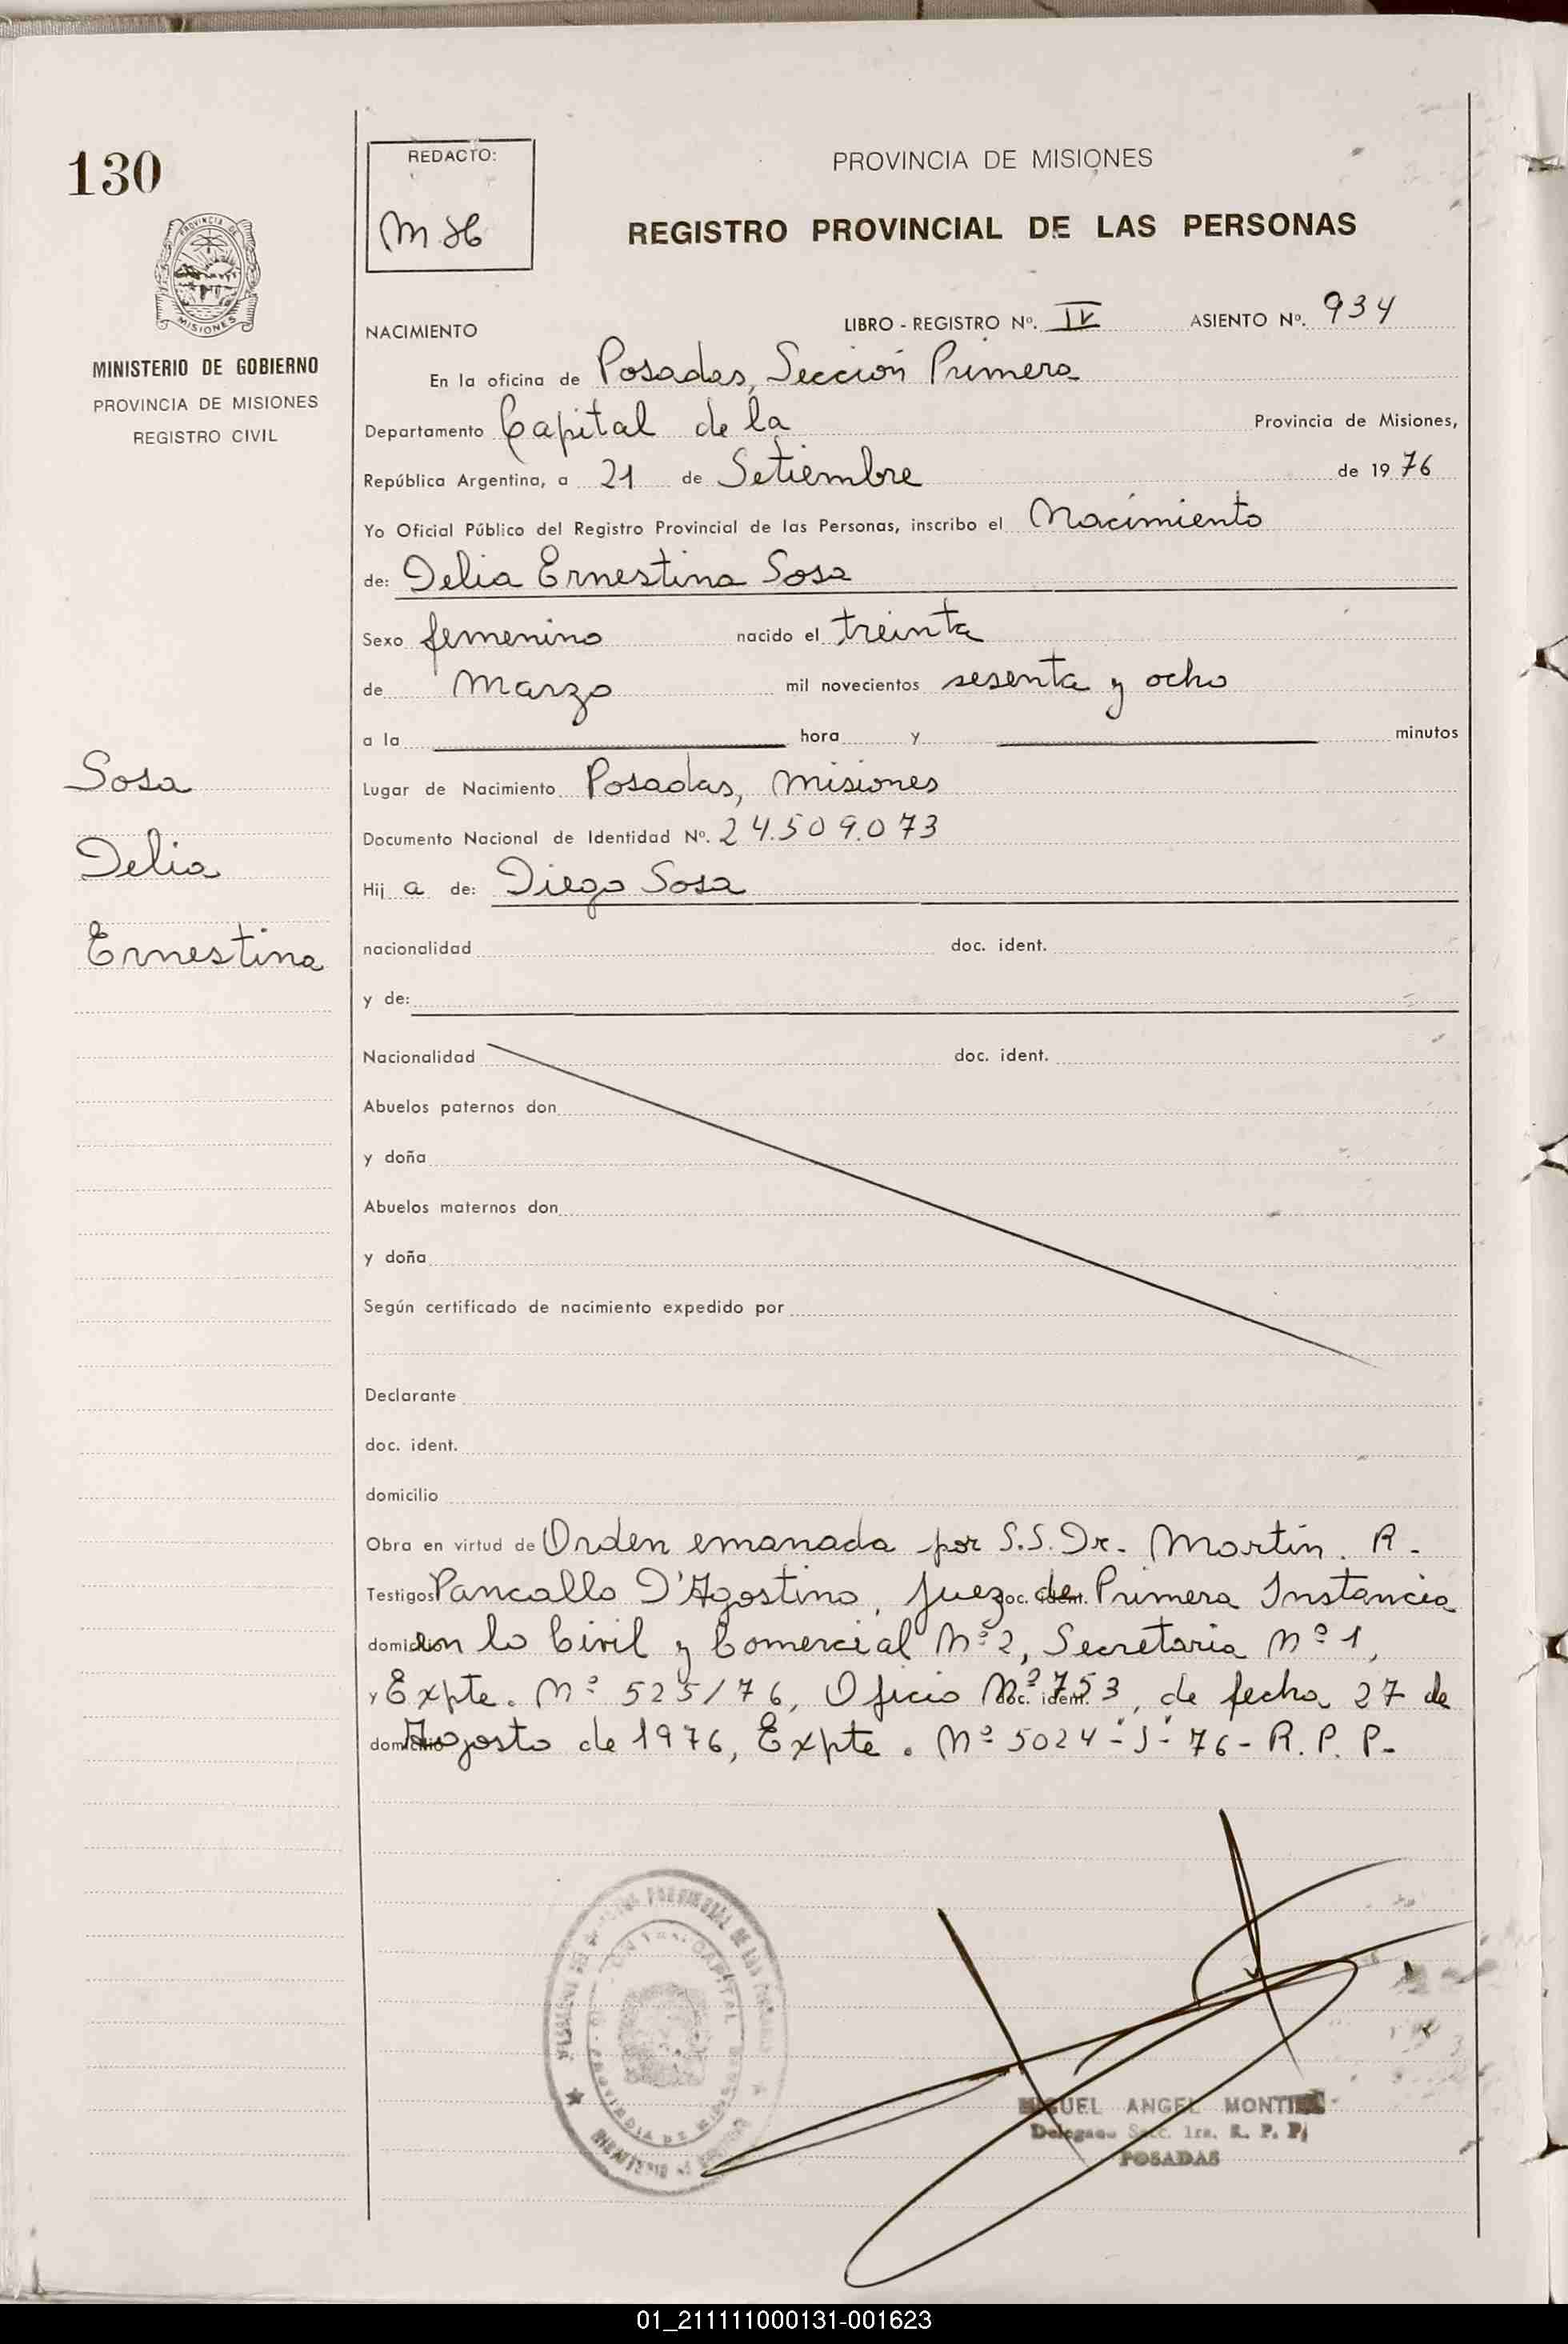 130
REDACTO:
M H
PROVINCIA DE MISIONES
REGISTRO PROVINCIAL DE LAS PERSONAS
PROVINCIA DE
MISIONES
MINISTERIO DE GOBIERNO
PROVINCIA DE MISIONES
REGISTRO CIVIL
NACIMIENTO LIBRO - REGISTRO Nº. IV ASIENTO Nº. 934
En la oficina de Posadas, Sección Primera
Departamento Capital de la Provincia de Misiones,
República Argentina, a 21 de Setiembre de 1976
Yo Oficial Público del Registro Provincial de las Personas, inscribo el Nacimiento
de: Delia Ernestina Sosa
Sexo femenino nacido el treinta
de Marzo mil novecientos sesenta y ocho
a la hora y minutos
Sosa
Delia
Ernestina
Lugar de Nacimiento Posadas, Misiones
Documento Nacional de Identidad Nº. 24.509.073
Hij a de: Diego Sosa
nacionalidad doc. ident.
y de:
Nacionalidad doc. ident.
Abuelos paternos don
y doña
Abuelos maternos don
y doña
Según certificado de nacimiento expedido por
Declarante
doc. ident.
domicilio
Obra en virtud de Orden emanada por S.S. Dr. Martín. R.
Testigos Pancallo D'Agostino, Juez de Primera Instancia
domicilio en lo Civil y Comercial Nº 2, Secretaria Nº 1,
y Expte. Nº 525/76, Oficio Nº 753, de fecha 27 de
domicilio Agosto de 1976, Expte. Nº 5024-"J"-76- R. P. P.-
MIGUEL ANGEL MONTIEL
Delegado Secc. 1ra. R. P. P.
POSADAS
01_211111000131-001623